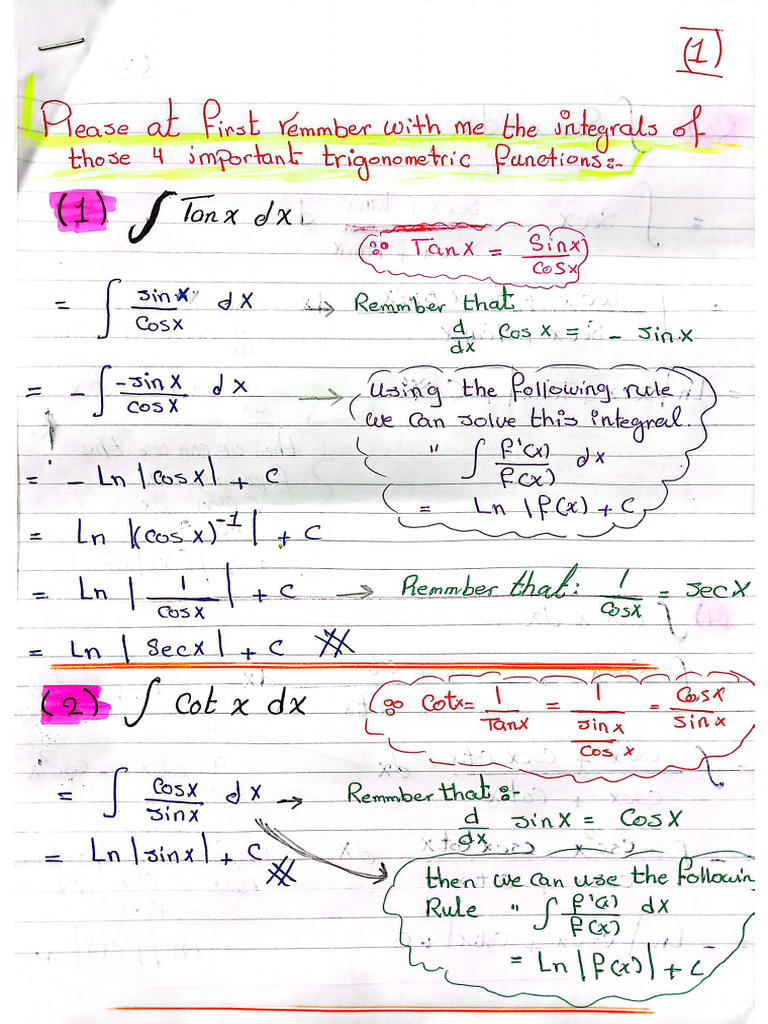 (1)
Please at first remmber with me the integrals of
those 4 important trigonometric functions:-
(1) ∫ Tanx dx.
∵ Tanx = Sinx/Cosx
= ∫ sinx/Cosx dx → Remmber that d/dx Cosx = - sinx
= - ∫ -sinx/cosx dx → Using the following rule
we can solve this integral.
" ∫ f'(x)/f(x) dx
= - Ln |cosx| + c
= Ln |f(x) + c
= Ln |(cosx)⁻¹| + c
= Ln |1/cosx| + c → Remmber that: 1/cosx = secx
= Ln |secx| + c
(2) ∫ Cot x dx
∵ Cotx = 1/Tanx = 1/(sinx/cosx) = Cosx/sinx
= ∫ Cosx/sinx dx → Remmber that:-
d/dx sinx = Cosx
= Ln |sinx| + c
then we can use the followin
Rule " ∫ f'(x)/f(x) dx
= Ln |f(x)| + c